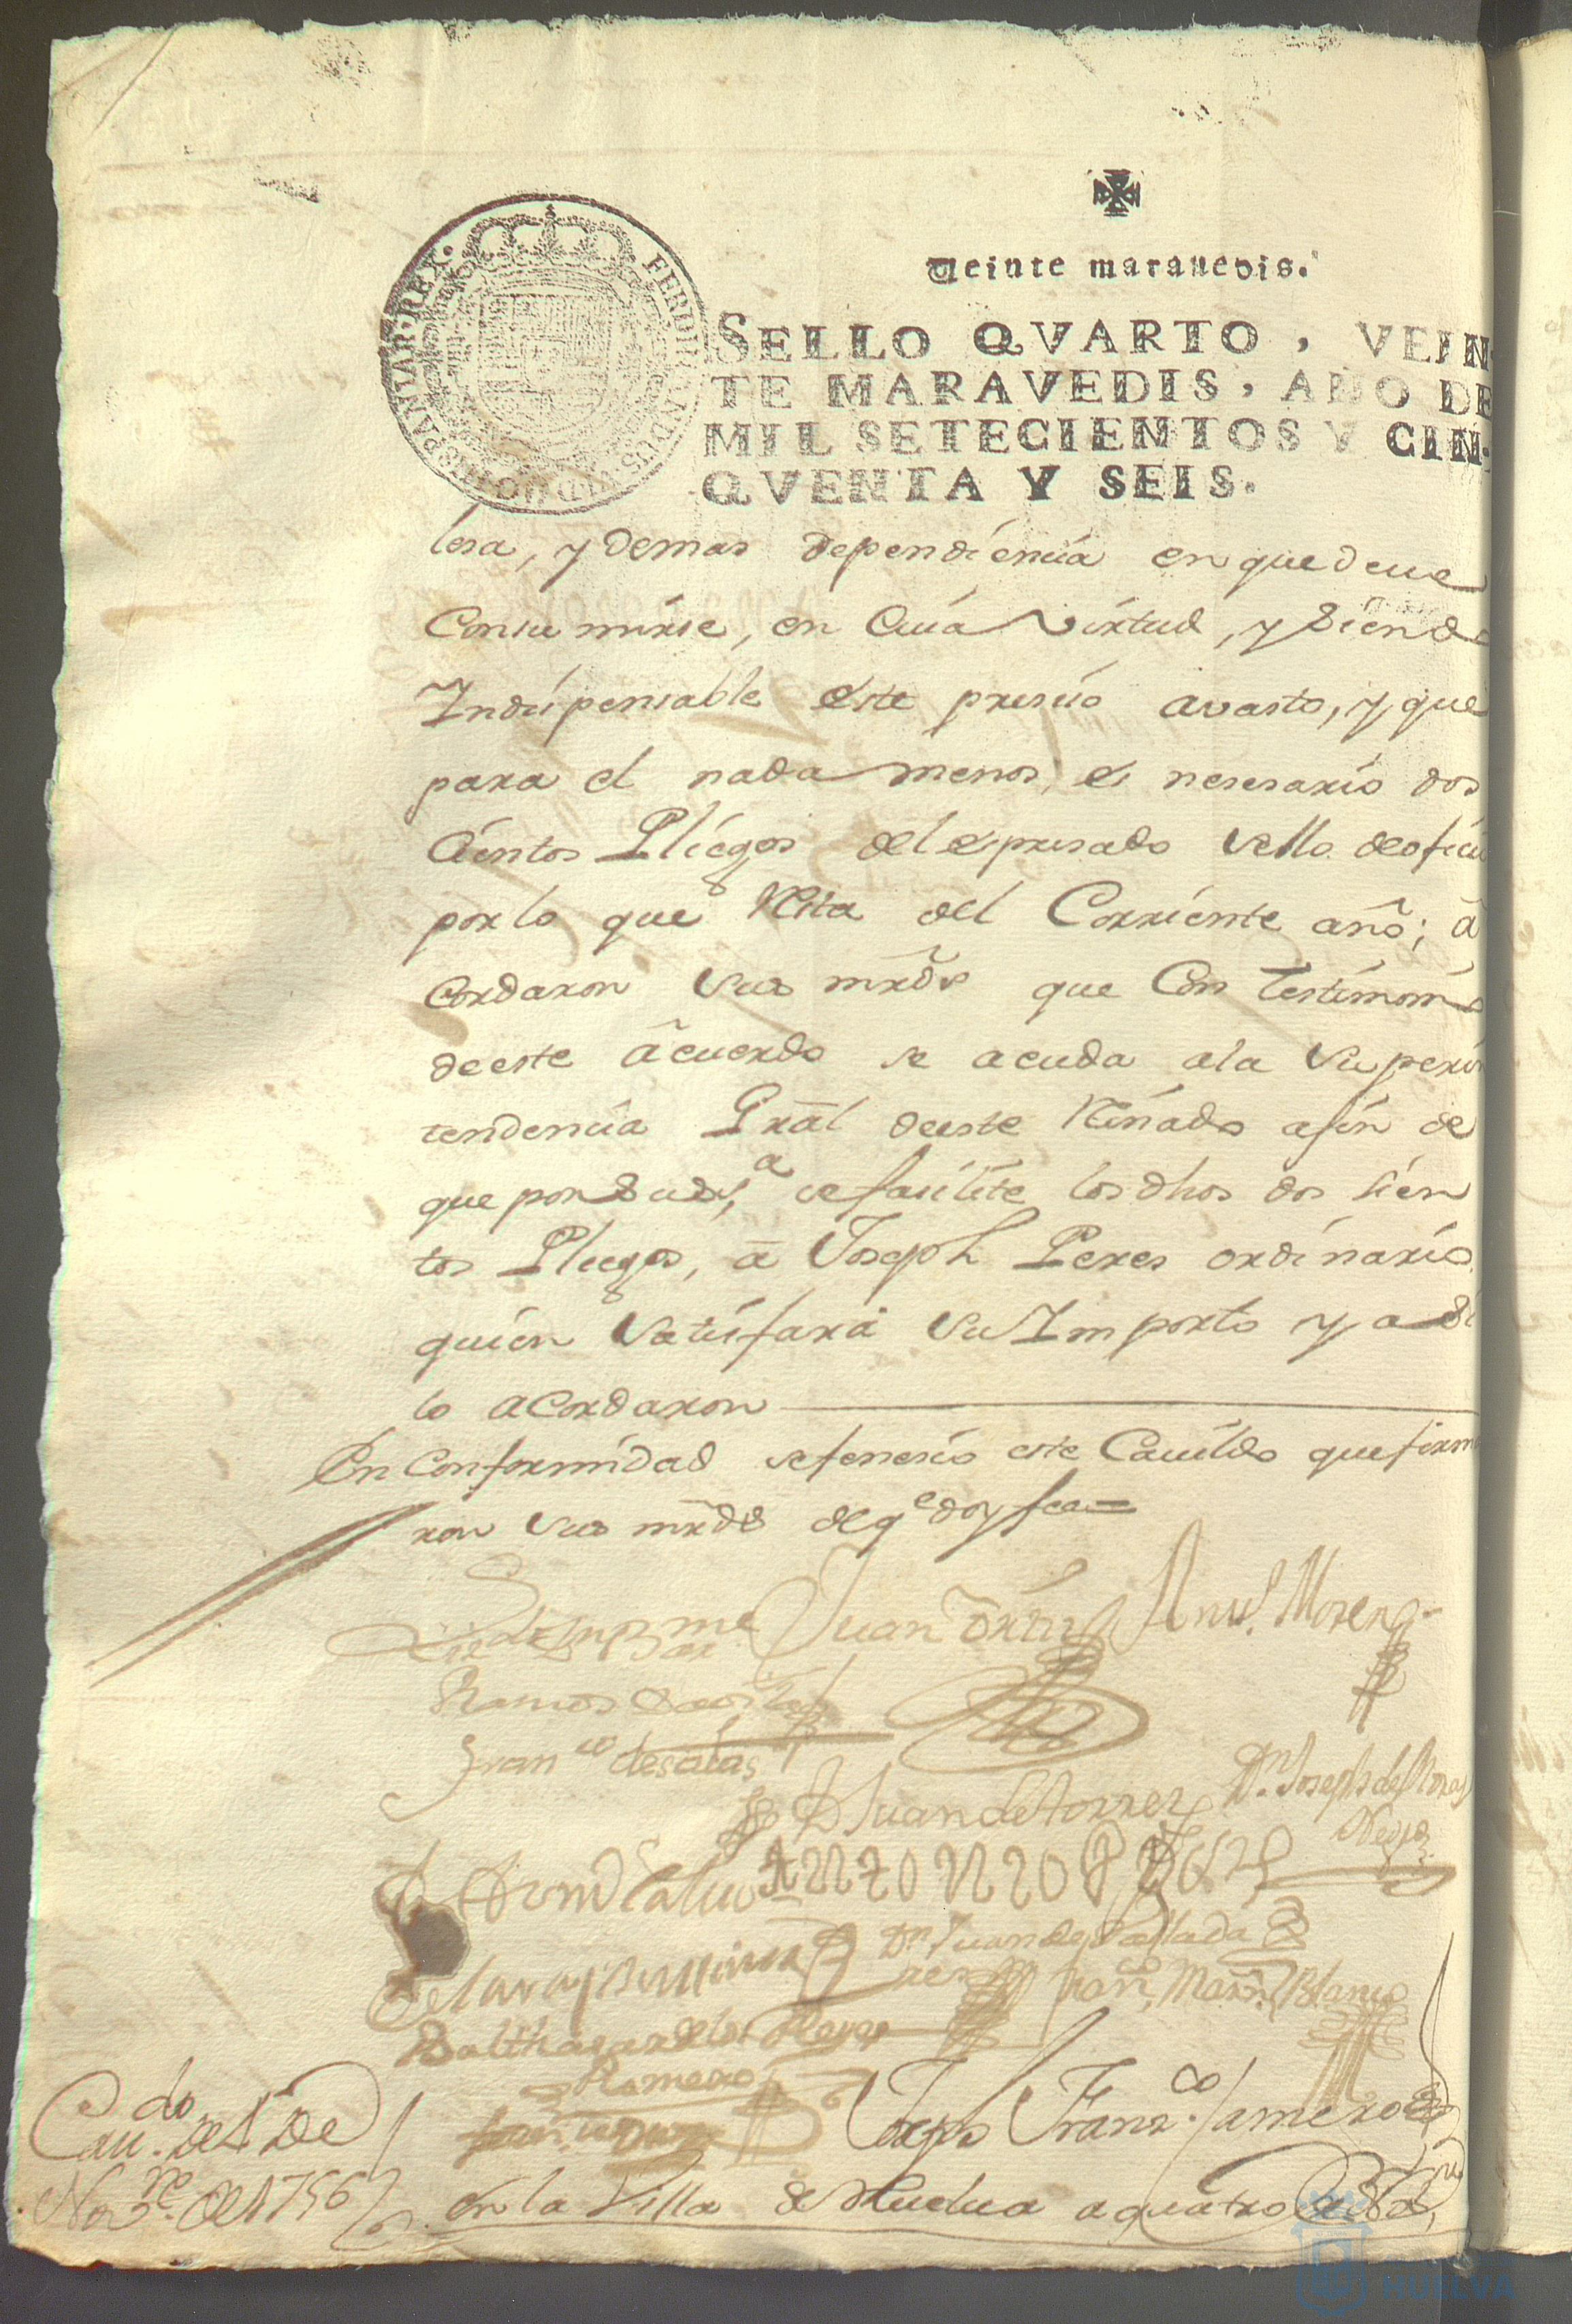 Veinte maravedis.
SELLO QVARTO, VEIN
TE MARAVEDIS, AÑO DE
MIL SETECIENTOS Y CIN-
QVENTA Y SEIS.
FERDINANDUS VI D G HISPANIAR REX.
lera, y demas dependiencia en que deue
Consumirse, en Cuia Virtud, y Siendo
Indispensable este presiso avasto, y que
para el nada menos, es nesesario dos
Cientos Pliegos del expresado Sello de ofici
por lo que Rsta del Corriente año; a
cordaron Sus mrds que Con testimonio
de este acuerdo se acuda a la Superin
tendencia Gral de este Reinado a fin de
que por Su Sa. se fasilite los dhos dos sien
tos Pliegos, a Joseph Peres ordinario
quien Satisfara Su Importe y a Si
lo acordaron
En Conformidad se fenesio este Cauildo que firma
ron Sus mrds de qe doy fee =
Juan Antt. Moreno
Ramos Dauila
Franco de salas
D Juan de torres Dn. Joseph de Mora
Negro
Antonio
Dn Juan de
Fran, Marn Blanco
Balthasar de los Reyes
Romero
Joseph Franco. Jamero
Caudo. de 4 De
Nove. de 1756
En la Villa de Huelua a quatro
HUELVA